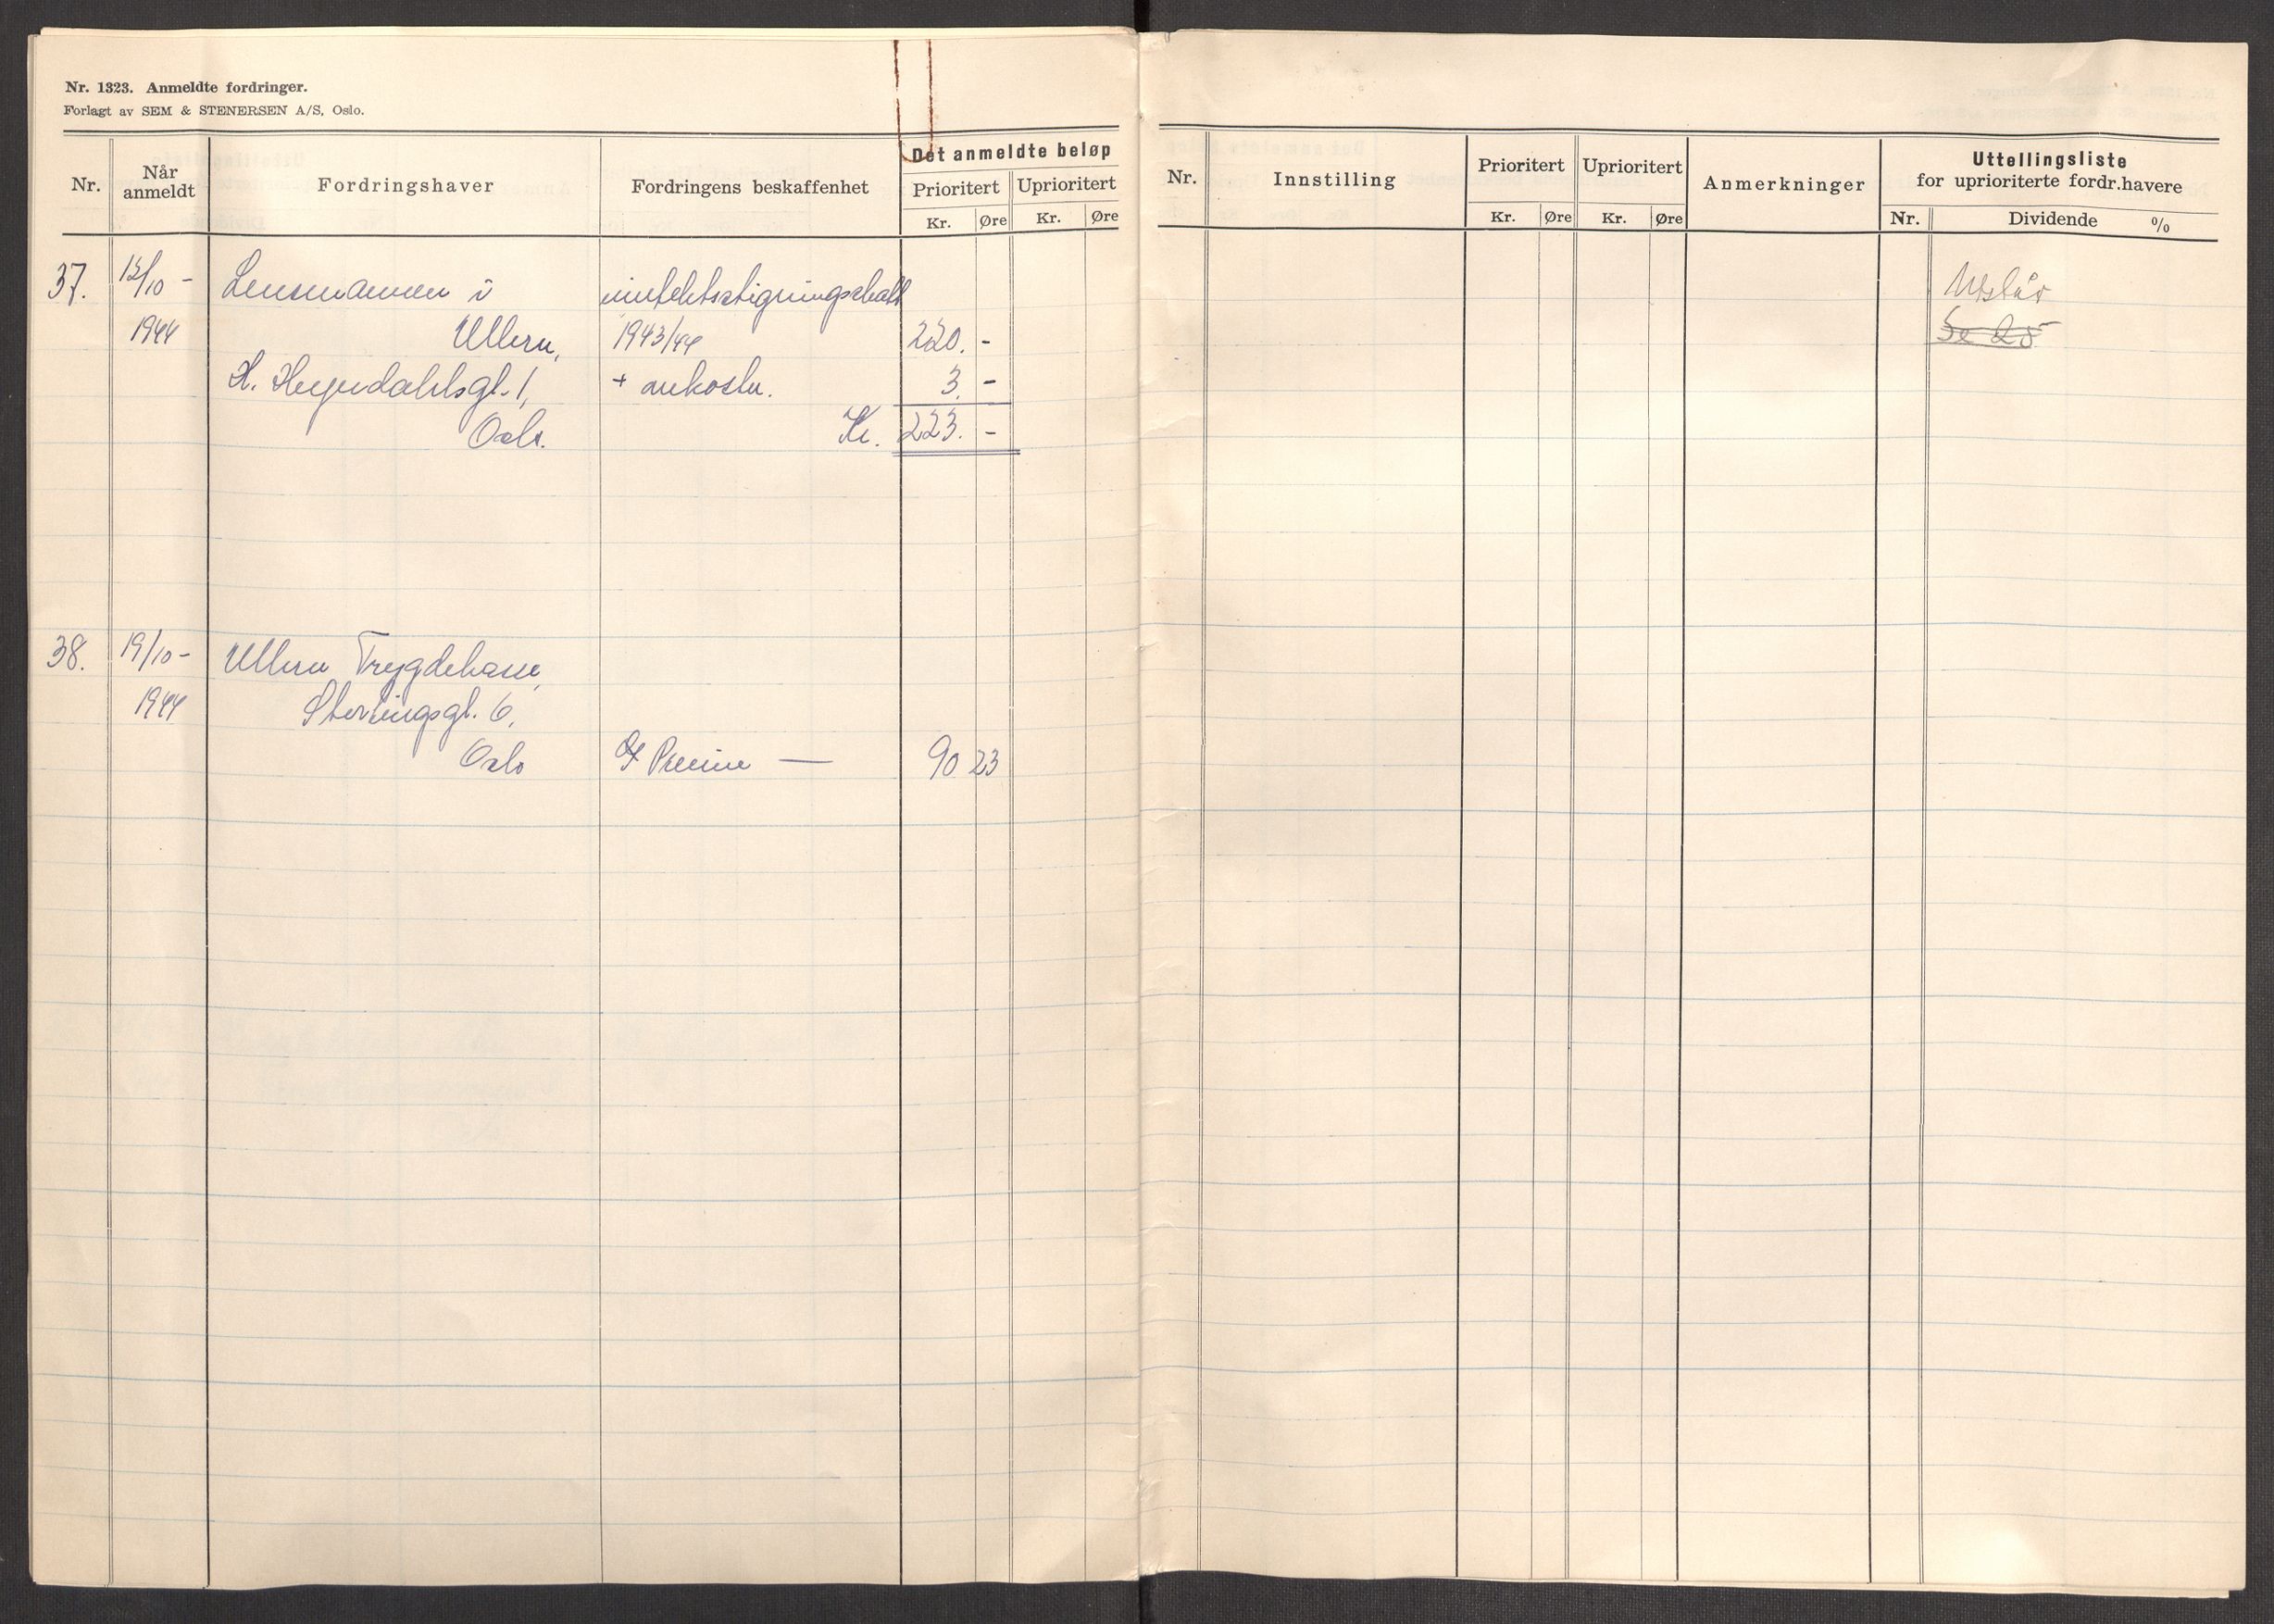 Nr. 1323. Anmeldte fordringer.
Forlagt av SEM & STENERSEN A/S, Oslo.
Nr. Når anmeldt Fordringshaver Fordringens beskaffenhet Det anmeldte beløp
Prioritert Uprioritert
Kr. Øre Kr. Øre
37. 12/10 - Lensmannen i inntektsstigningsskatt
1944 Ullern, 1943/44 220. -
H. Heyerdahlsgt. 1, + omkostn. 3. -
Oslo. Kr. 223. -
38. 19/10 - Ullern Trygdekasse,
1944 Stortingsgt. 6,
Oslo Premie — 90 23
Nr. Innstilling Prioritert Uprioritert Anmerkninger Uttellingsliste
for uprioriterte fordr.havere
Kr. Øre Kr. Øre Nr. Dividende %
Utslår